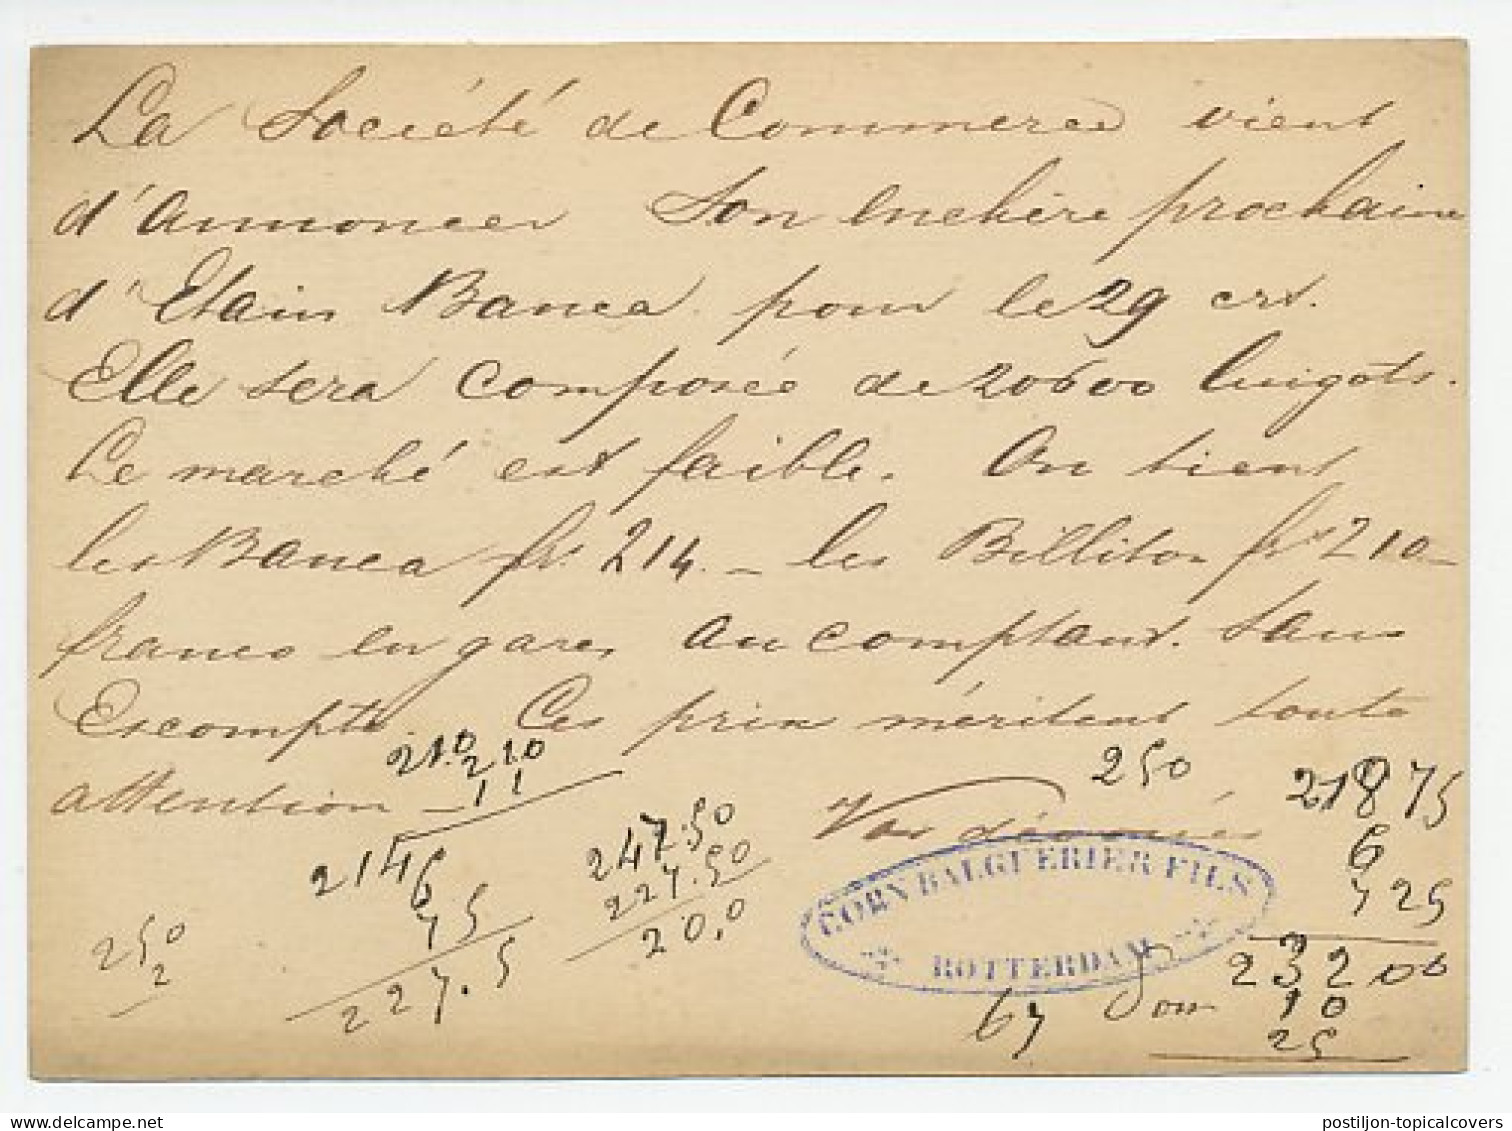 La Société de Commerce vient
d'Annoncer Son Enchère prochaine
d'Etain Banca pour le 29 crt.
Elle sera composée de 20600 lingots.
Le marché est faible. On tient
les Banca fr. 214. – les Billiton frs 210 –
franco en gare, au comptant. Sans
Escompte. Ces prix méritent toute
attention –
Vos dévoués
210 210
11
214
6
75
227.5
247.50
227.50
20,0
250
2
250
218 75
6
7 25
232 00
10
25
67
CORN BALGUERIER FILS
ROTTERDAM
postiljon-topicalcovers